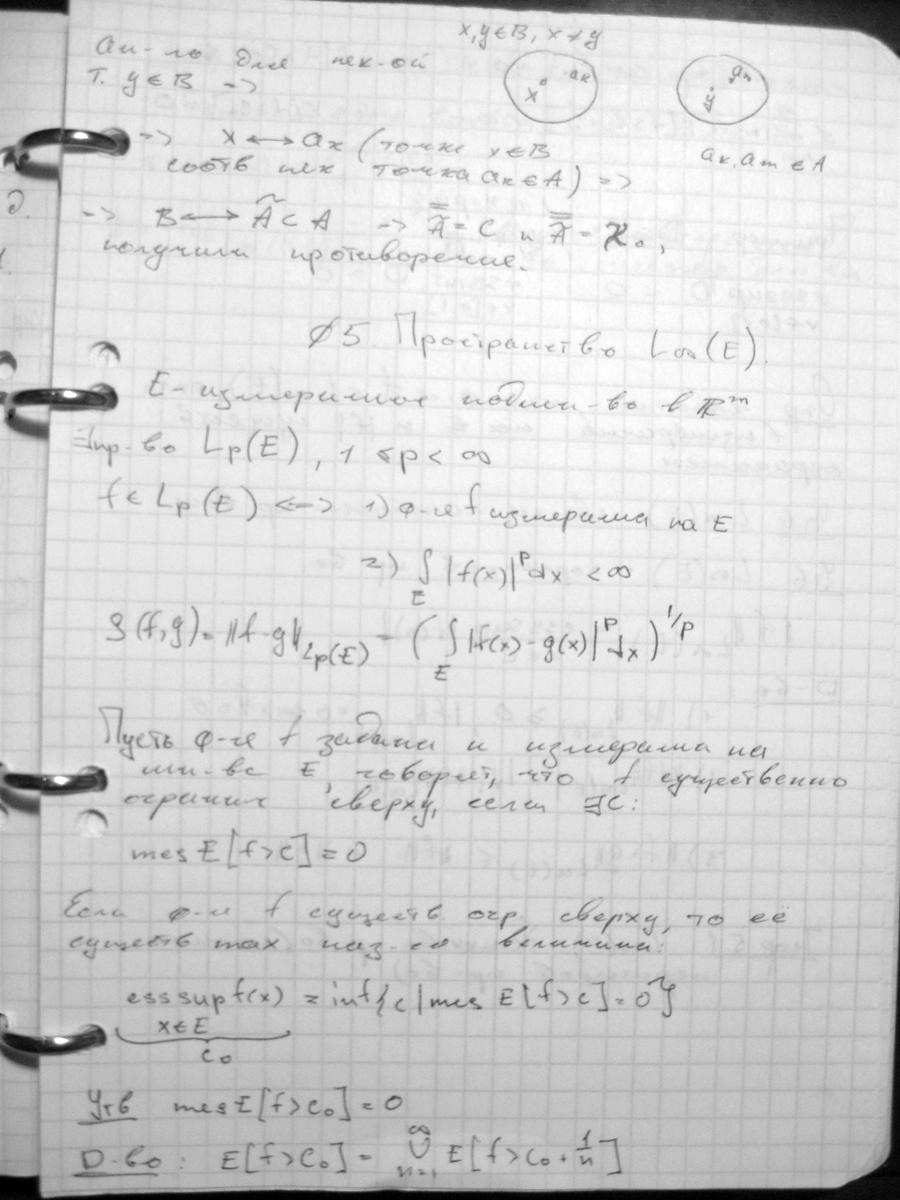 x, y ∈ B, x ≠ y
an-го для нек-ой
т. y ∈ B =>
x ak
y an
ak, am ∈ A
=> x <-> ak (точке x ∈ B
соотв нек точка ak ∈ A) =>
=> B <-> Ã ⊂ A => Ã̿ = C и A̿ = ℵ₀,
получили противоречие.
§5. Пространство L∞(E).
E - измеримое подмн-во в ℝᵐ
∃ пр-во Lp(E), 1 ≤ p < ∞
f ∈ Lp(E) <-> 1) ф-я f измерима на E
2) ∫_E |f(x)|^p dx < ∞
ρ(f,g) = ||f-g||_{Lp(E)} = (∫_E |f(x) - g(x)|^p dx)^{1/p}
Пусть ф-я f задана и измерима на
мн-ве E, говорят, что f существенно
огранич сверху, если ∃C:
mes E[f>c] = 0
Если ф-я f существ. огр. сверху, то её
существ max наз-ся величина:
esssup f(x) = inf{c | mes E[f>c] = 0}
x ∈ E
c₀
Утв mes E[f>c₀] = 0
Д-во: E[f>c₀] = ⋃_{n=1}^∞ E[f>c₀ + 1/n]